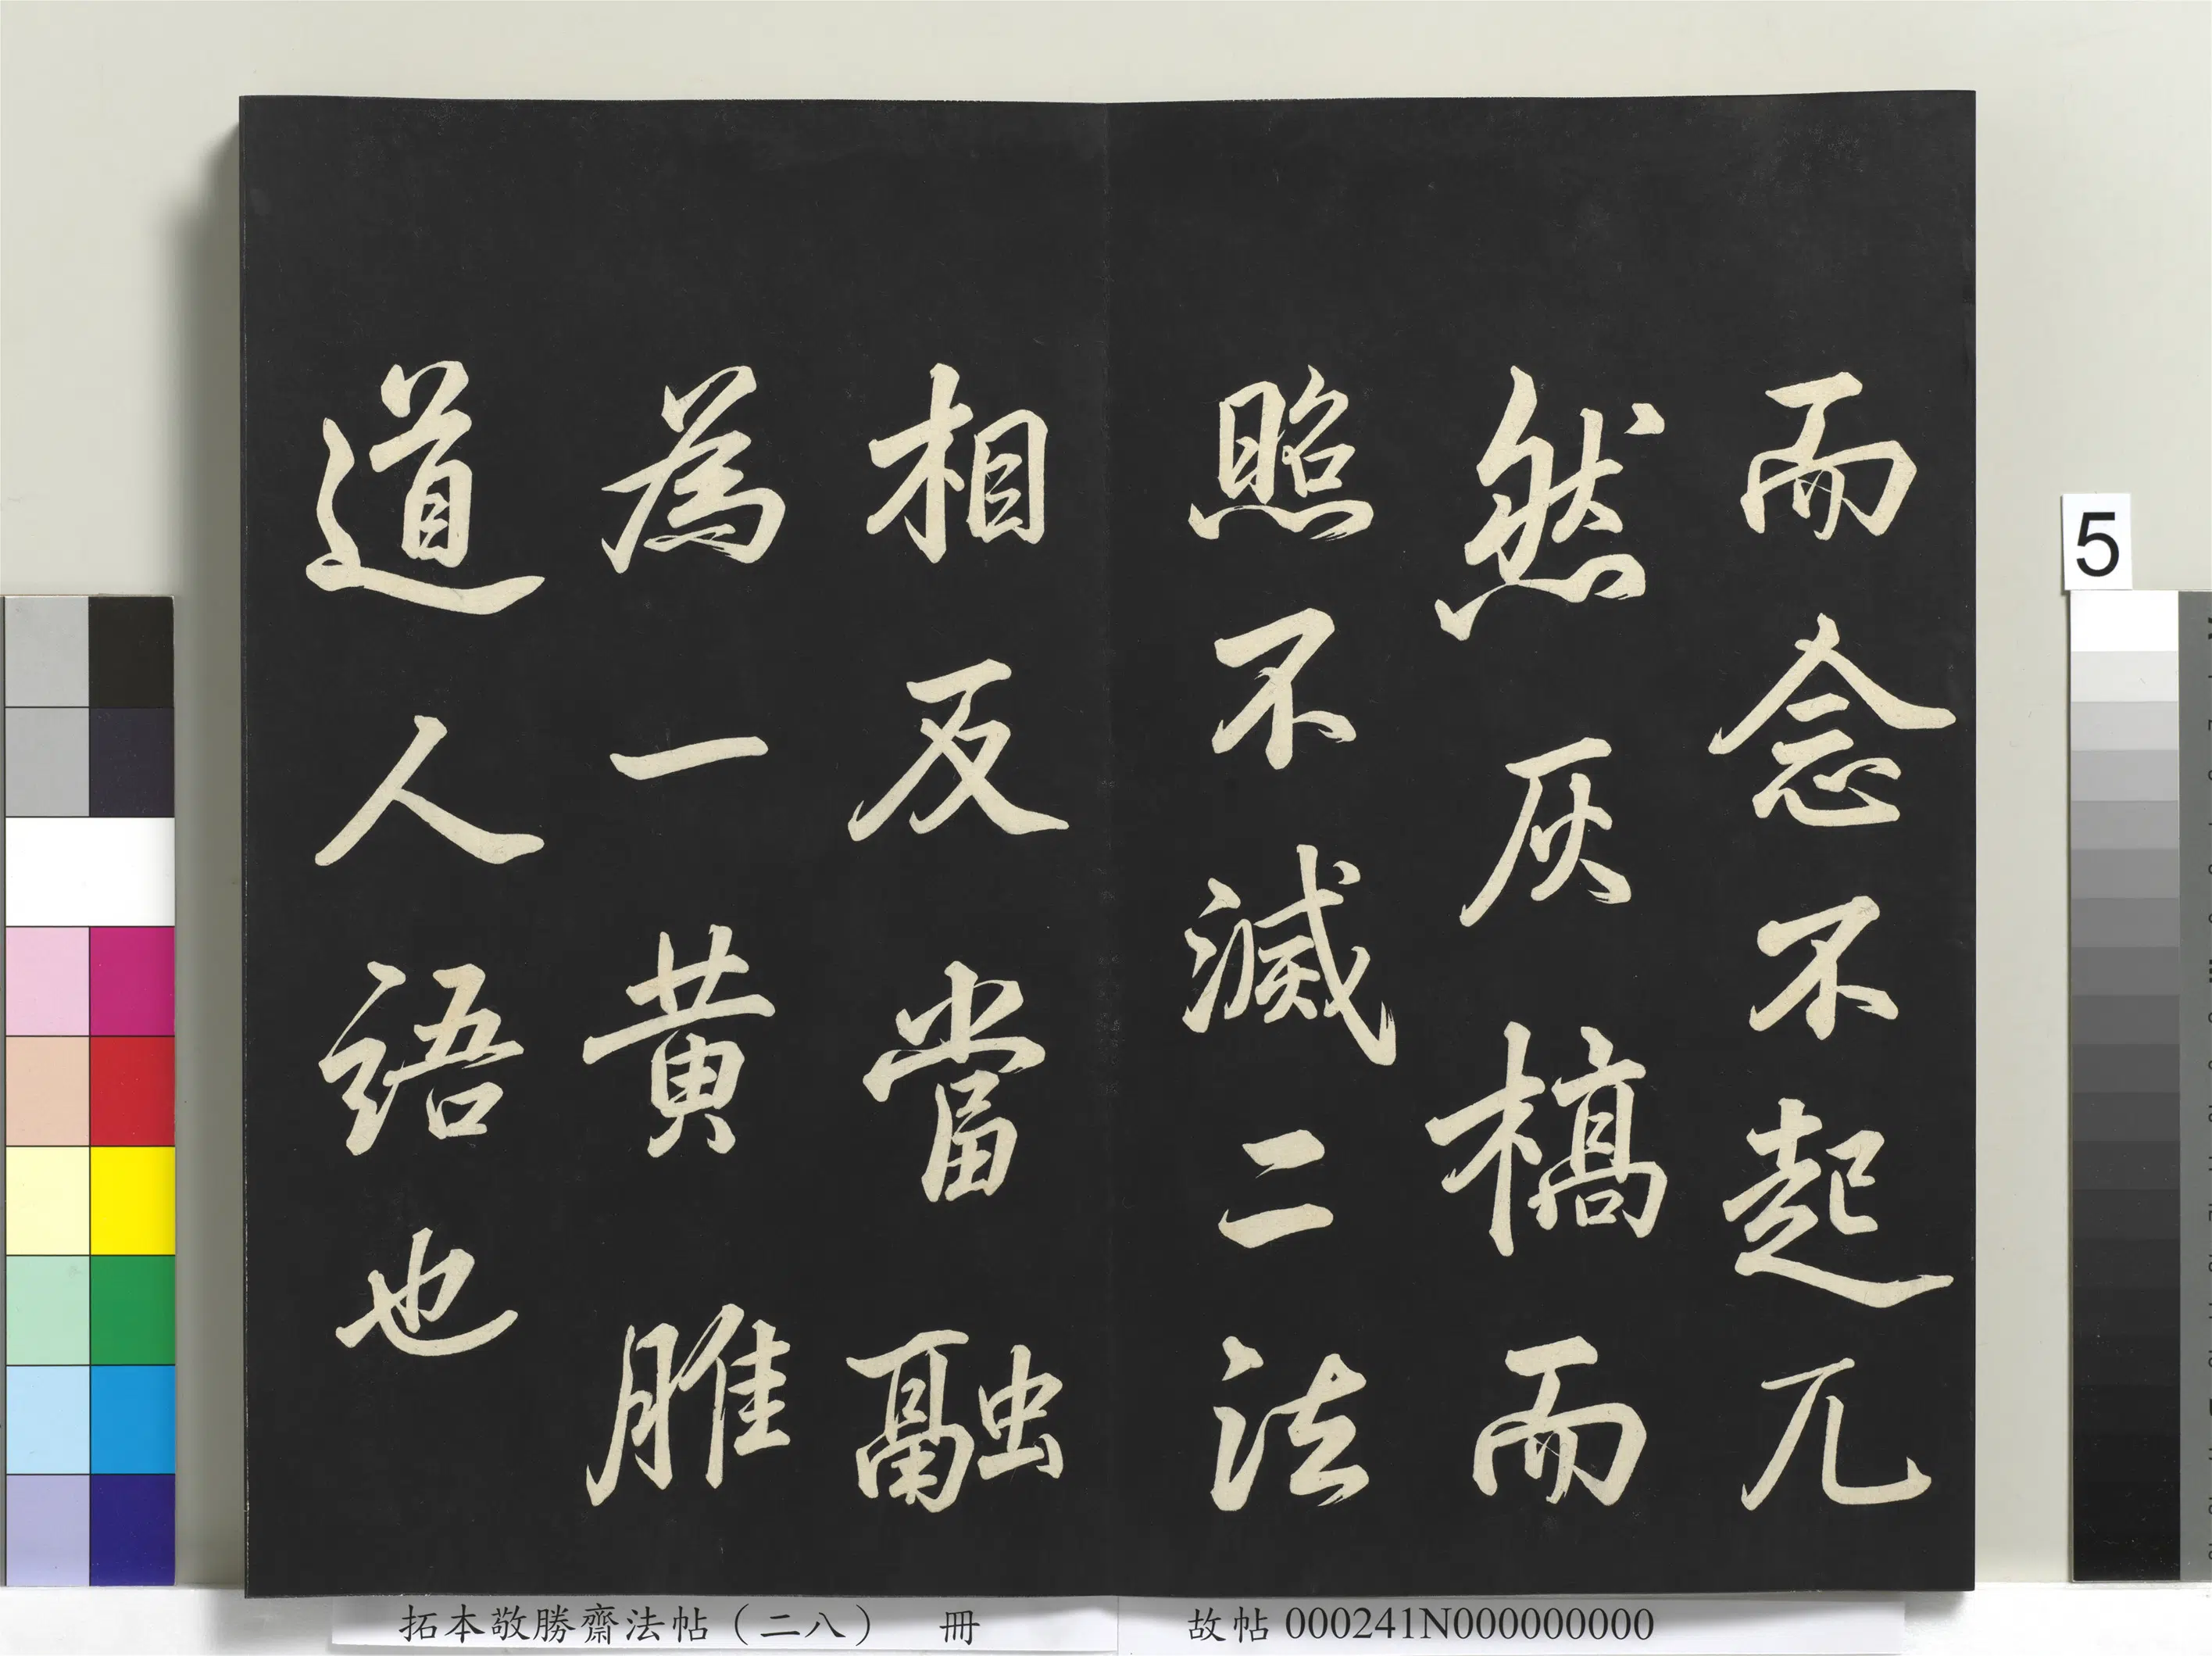 而念不起兀
然灰槁而
照不滅二法
相反當融
為一黄脽
道人語也
5
拓本敬勝齋法帖（二八） 冊
故帖 000241N000000000